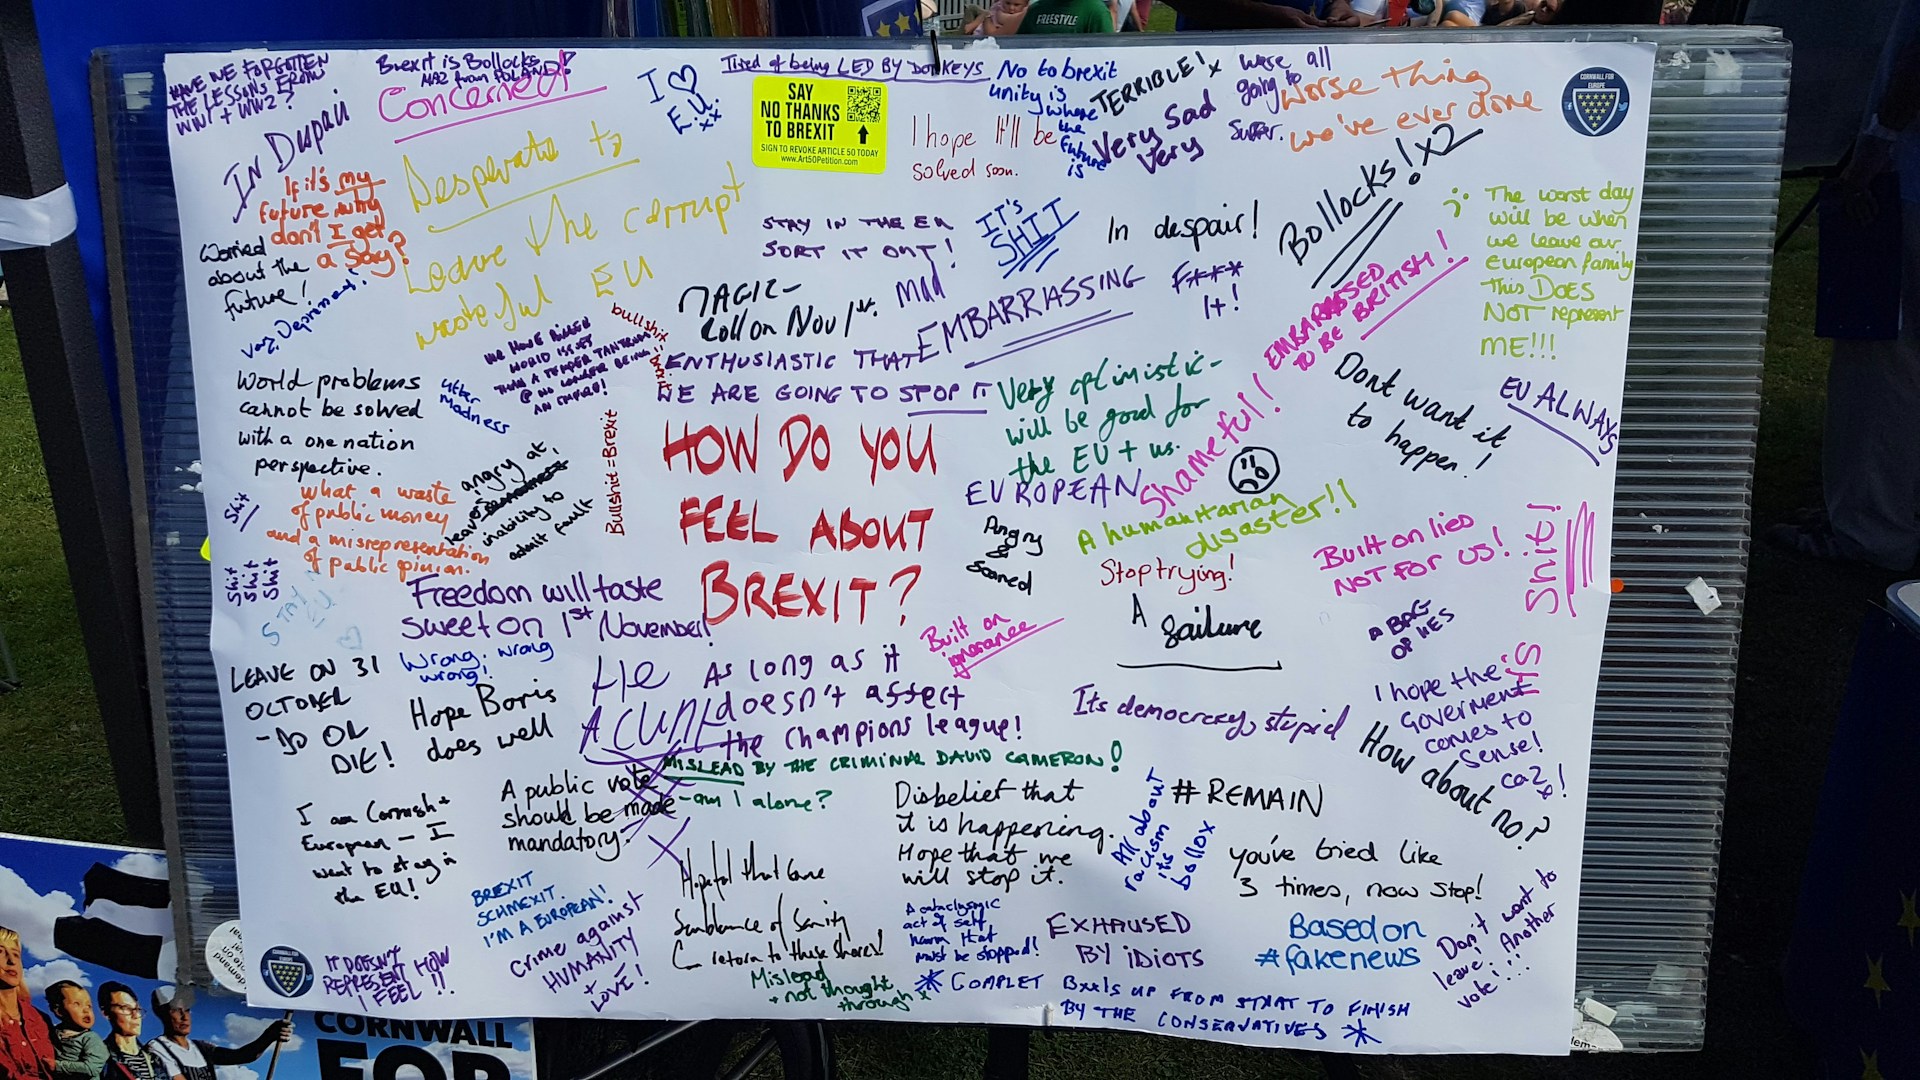 HAVE WE FORGOTTEN
THE LESSONS FROM
WW1 + WW2?
Brexit is Bollocks
Concerned!
In Despair
If it's my
future why
don't I get
a say?
Worried
about the
future!
very Depressed!
Desperate to
Leave the corrupt
wasteful EU
I ♡
E.U.
xx
Tired of being LED BY DONKEYS
SAY
NO THANKS
TO BREXIT
SIGN TO REVOKE ARTICLE 50 TODAY
www.Art50Petition.com
FREESTYLE
No to brexit
unity is
where
the
future
is
TERRIBLE! x
Very Sad
Very
I hope it'll be
solved soon.
we're all
going to
suffer.
Worse thing
we've ever done
CORNWALL FOR
EUROPE
Bollocks! x2
The worst day
will be when
we leave our
European family
This DOES
NOT represent
ME!!!
STAY IN THE EU
SORT IT OUT!
IT'S
SHIT
In despair!
F***
It!
EMBARRASSED
TO BE BRITISH!
MAGIC-
Roll on Nov 1st.
Mad
EMBARRIASSING
bullshit
ENTHUSIASTIC THAT
WE ARE GOING TO STOP IT
WE HAVE BIGGER
WORLD ISSUES
THAN A TEMPER TANTRUM
@ NO LONGER BEING
AN EMPIRE!
World problems
cannot be solved
with a one nation
perspective.
utter
madness
angry at,
leave
inability to
admit fault
Bullshit = Brexit
HOW DO YOU
FEEL ABOUT
BREXIT?
Very optimistic-
will be good for
the EU + us.
EUROPEAN
Shameful!
Dont want it
to happen!
EU ALWAYS
Shit
what a waste
of public money
and a misrepresentation
of public opinion.
Shit
Shit
Shit
STAY
EU
Angry
&
Scared
A humanitarian
disaster!!
Stop trying!
A failure
Built on lies
NOT FOR US!
Shit!
Freedom will taste
sweet on 1st November!
Wrong, wrong
wrong!
LEAVE ON 31
OCTOBER
- DO OR
DIE!
Hope Boris
does well
He
A CUNT
As long as it
doesn't affect
the Champions league!
Built on
ignorance
A BAG
OF LIES
Its democracy, stupid
I hope the
Goverment
comes to
sense!
How about no?
MISLEAD BY THE CRIMINAL DAVID CAMERON!
- am I alone?
I am Cornish +
European - I
want to stay in
the EU!
A public vote
should be made
mandatory.
Disbelief that
it is happening.
Hope that we
will stop it.
All about
racism
its
bollox
#REMAIN
you've tried like
3 times, now stop!
BREXIT
SCHMEXIT.
I'M A EUROPEAN!
Hopeful that some
Semblance of Sanity
return to these shores!
A cataclysmic
act of self
harm that
must be stopped!
EXHAUSED
BY IDIOTS
Based on
#fakenews
Don't want to
leave! Another
vote!...
CORNWALL FOR
EUROPE
IT DOESN'T
REPRESENT HOW
I FEEL!!
Crime against
HUMANITY
+
LOVE!
Mislead
+ not thought
through x
* COMPLET BALLS UP FROM START TO FINISH
BY THE CONSERVATIVES *
CORNWALL
FOR